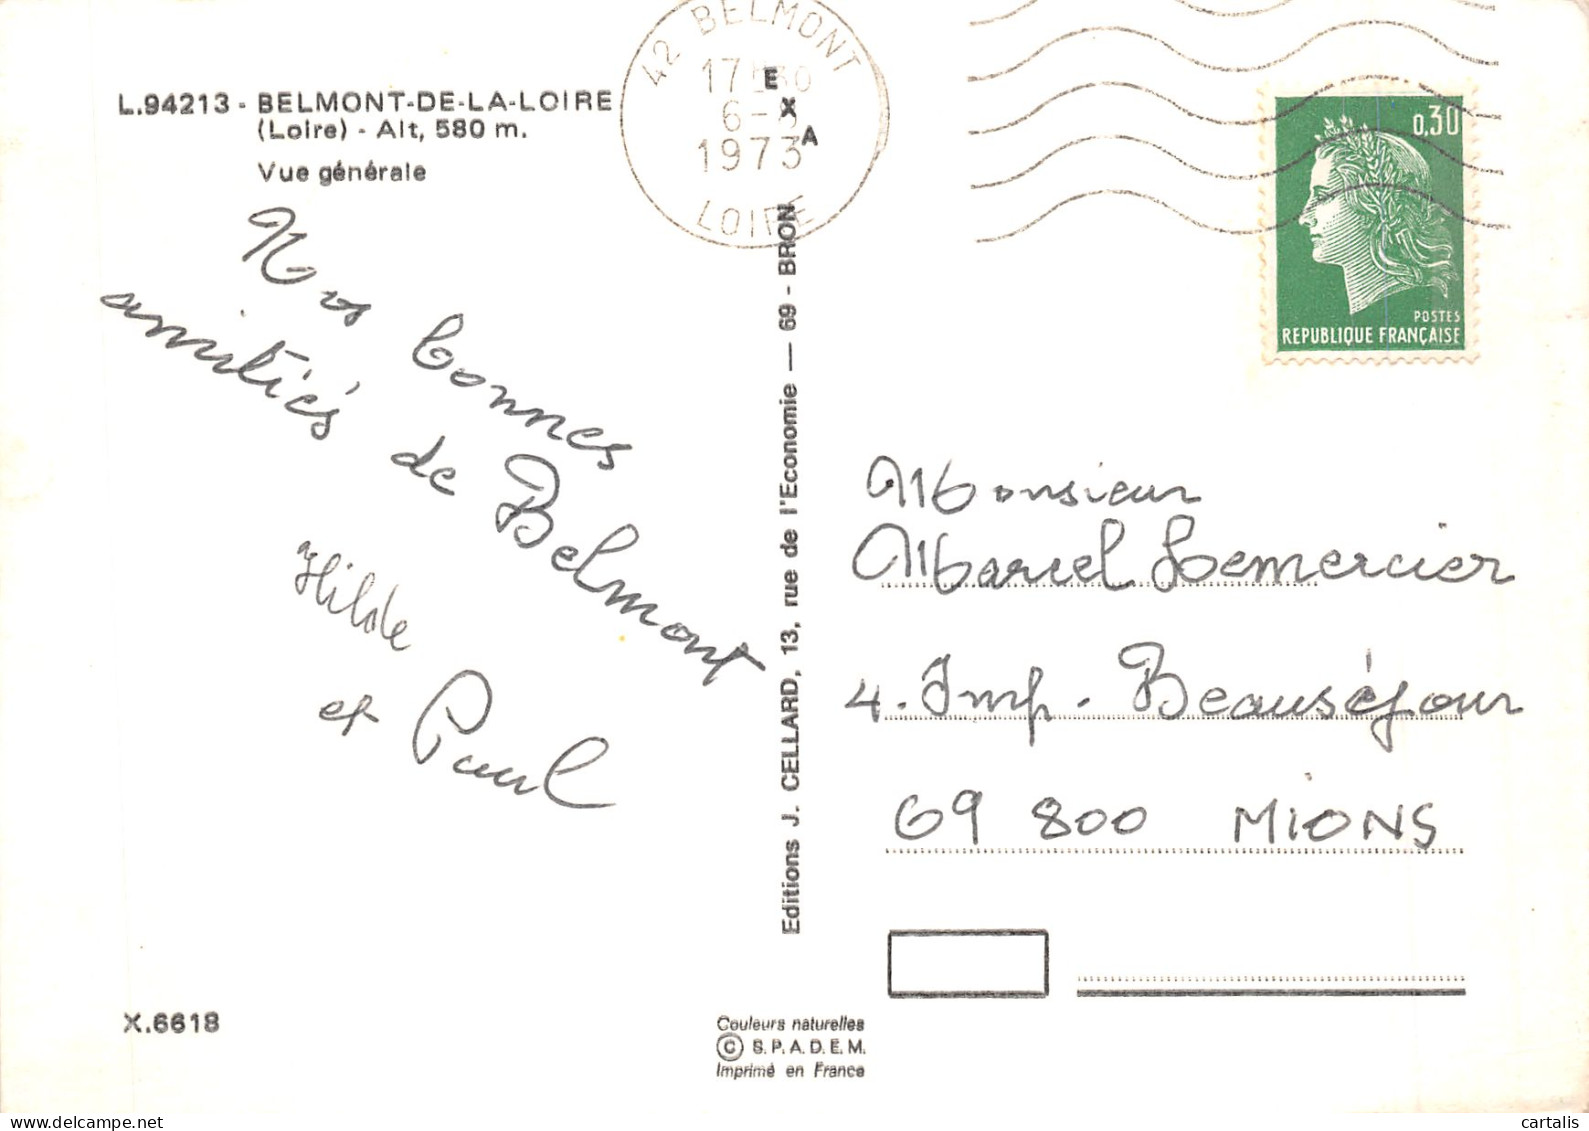 L.94213 - BELMONT-DE-LA-LOIRE
(Loire) - Alt, 580 m.
Vue générale
Nos bonnes
amitiés de Belmont
Hilde
et Paul
X.6618
42 BELMONT
17
6-
1973
LOIRE
EXA
Editions J. CELLARD, 13, rue de l'Economie — 69 - BRON
Couleurs naturelles
© S.P.A.D.E.M.
Imprimé en France
0,30
POSTES
REPUBLIQUE FRANÇAISE
Monsieur
Marcel Lemercier
4. Imp. Beauséjour
69 800 MIONS
cartalis